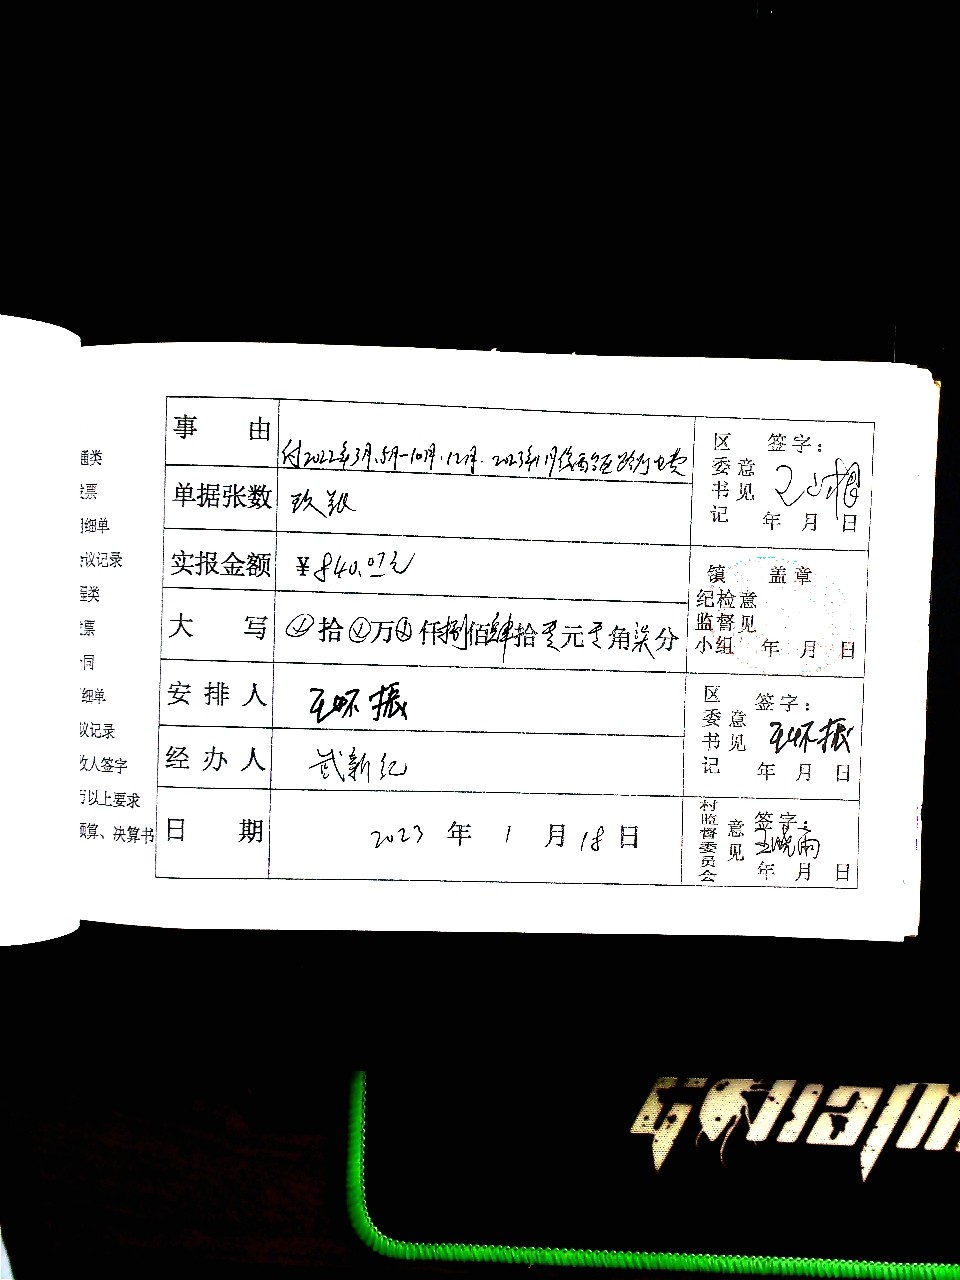 通类
发票
明细单
会议记录
程类
发票
合同
明细单
会议记录
收人签字
万以上要求
预算、决算书
事由
付2022年3月、5月-10月、12月、2023年1月 路灯电费
单据张数
玖张
实报金额
¥840.07元
大写
拾 万 仟捌佰肆拾零元零角柒分
安排人
王怀振
经办人
武新纪
日期
2023年1月18日
区委书记意见
签字：
年月日
镇纪检监督小组意见
盖章
年月日
区委书记意见
签字：
王怀振
年月日
村监督委员会意见
签字：
王晓雨
年月日